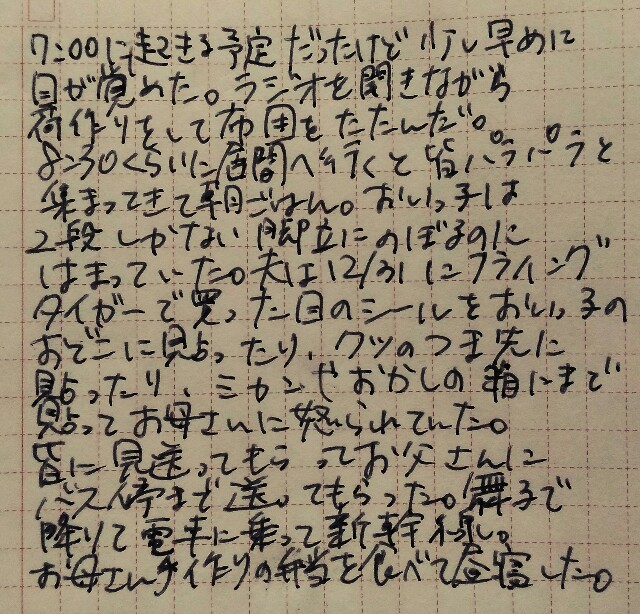 7:00に起きる予定だったけど少し早めに
目が覚めた。ラジオを聞きながら
荷作りをして布団をたたんだ。
8:30くらいに居間へ行くと皆パラパラと
集まってきて朝ごはん。おいっ子は
2段しかない脚立にのぼるのに
はまっていた。夫は12/31にフライング
タイガーで買った目のシールをおいっ子の
おでこに貼ったり、クツのつま先に
貼ったり、ミカンやおかしの箱にまで
貼ってお母さんに怒られていた。
皆に見送ってもらってお父さんに
バス停まで送ってもらった。舞子で
降りて電車に乗って新幹線。
お母さん手作りの弁当を食べて昼寝した。